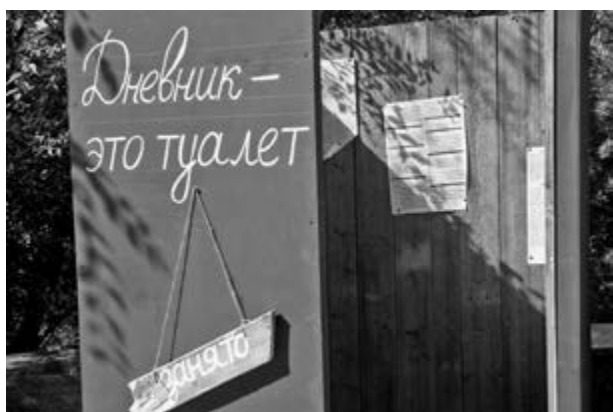 Дневник –
это туалет
занято